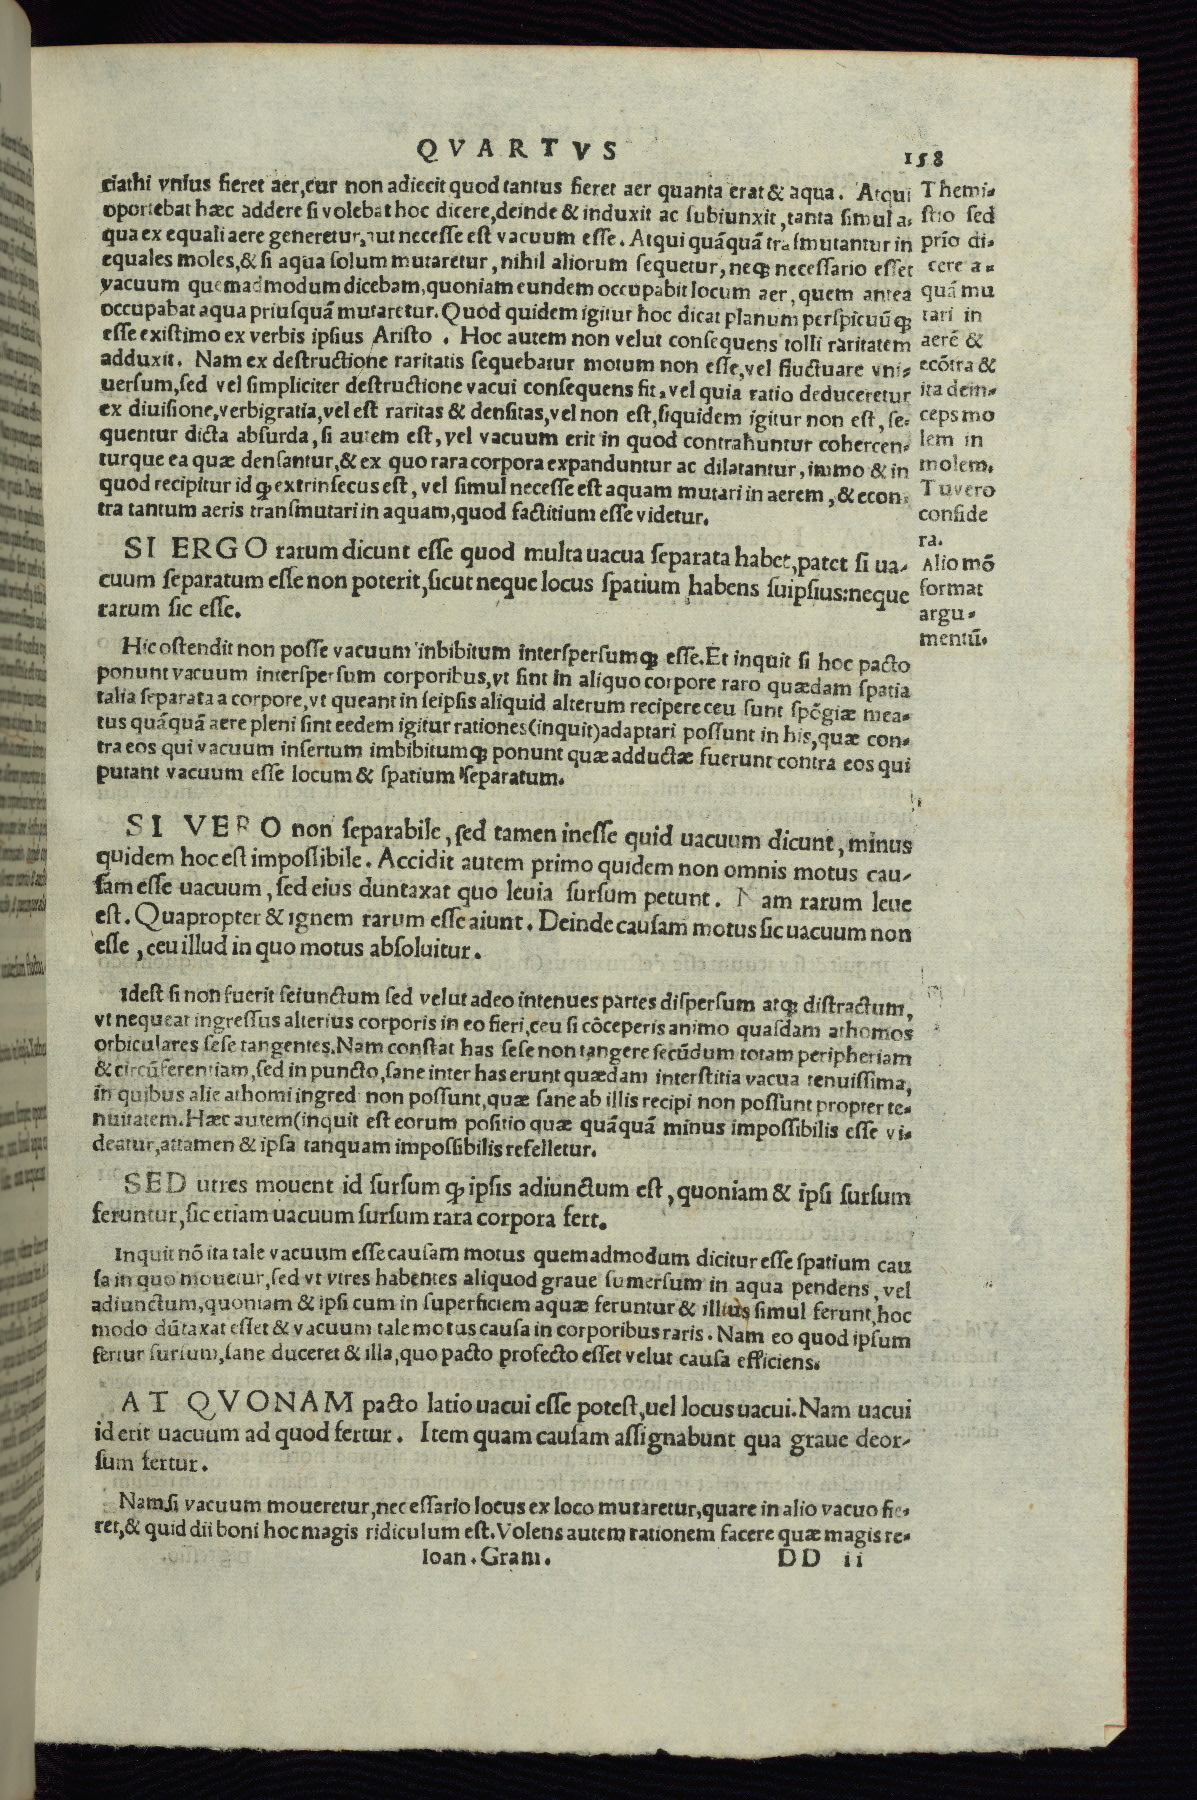 QVARTVS
158
ciathi vnius fieret aer, cur non adiecit quod tantus fieret aer quanta erat & aqua. Atqui
oportebat hæc addere si volebat hoc dicere, deinde & induxit ac subiunxit, tanta simul a=
qua ex equali aere generetur, aut necesse est vacuum esse. Atqui quãquã trãsmutantur in
equales moles, & si aqua solum mutaretur, nihil aliorum sequetur, neq; necessario esset
vacuum quemadmodum dicebam, quoniam eundem occupabit locum aer, quem antea
occupabat aqua priusquã mutaretur. Quod quidem igitur hoc dicat planum perspicuũq;
esse existimo ex verbis ipsius Aristo. Hoc autem non velut consequens tolli raritatem
adduxit. Nam ex destructione raritatis sequebatur motum non esse, vel fluctuare vni=
uersum, sed vel simpliciter destructione vacui consequens fit, vel quia ratio deduceretur
ex diuisione, verbigratia, vel est raritas & densitas, vel non est, siquidem igitur non est, se=
quentur dicta absurda, si autem est, vel vacuum erit in quod contrahuntur cohercen=
turque ea quæ densantur, & ex quo rara corpora expanduntur ac dilatantur, immo & in
quod recipitur id q; extrinsecus est, vel simul necesse est aquam mutari in aerem, & econ=
tra tantum aeris transmutari in aquam, quod factitium esse videtur.
Themi=
stio sed
prio di=
cere a=
quã mu
tari in
aerẽ &
ecõtra &
ita dein=
ceps mo
lem in
molem.
Tu vero
conside
ra.
Alio mõ
format
argu=
mentũ.
SI ERGO rarum dicunt esse quod multa uacua separata habet, patet si ua-
cuum separatum esse non poterit, sicut neque locus spatium habens suipsius: neque
rarum sic esse.
Hic ostendit non posse vacuum inbibitum interspersumq; esse. Et inquit si hoc pacto
ponunt vacuum interspersum corporibus, vt sint in aliquo corpore raro quædam spatia
talia separata a corpore, vt queant in seipsis aliquid alterum recipere ceu sunt spõgiæ mea=
tus quãquã aere pleni sint eedem igitur rationes (inquit) adaptari possunt in his, quæ con=
tra eos qui vacuum insertum imbibitumq; ponunt quæ adductæ fuerunt contra eos qui
putant vacuum esse locum & spatium separatum.
SI VERO non separabile, sed tamen inesse quid uacuum dicunt, minus
quidem hoc est impossibile. Accidit autem primo quidem non omnis motus cau-
sam esse uacuum, sed eius duntaxat quo leuia sursum petunt. Nam rarum leue
est. Quapropter & ignem rarum esse aiunt. Deinde causam motus sic uacuum non
esse, ceu illud in quo motus absoluitur.
Idest si non fuerit seiunctum sed velut adeo intenues partes dispersum atq; distractum,
vt nequeat ingressus alterius corporis in eo fieri, ceu si cõceperis animo quasdam athomos
orbiculares sese tangentes. Nam constat has sese non tangere secũdum totam peripheriam
& circũferentiam, sed in puncto, sane inter has erunt quædam interstitia vacua tenuissima,
in quibus alie athomi ingred non possunt, quæ sane ab illis recipi non possunt propter te=
nuitatem. Hæc autem (inquit est eorum positio quæ quãquã minus impossibilis esse vi=
deatur, attamen & ipsa tanquam impossibilis refelletur.
SED utres mouent id sursum q; ipsis adiunctum est, quoniam & ipsi sursum
feruntur, sic etiam uacuum sursum rara corpora fert.
Inquit nõ ita tale vacuum esse causam motus quemadmodum dicitur esse spatium cau
sa in quo mouetur, sed vt vtres habentes aliquod graue sumersum in aqua pendens, vel
adiunctum, quoniam & ipsi cum in superficiem aquæ feruntur & illius simul ferunt, hoc
modo dũtaxat esset & vacuum tale motus causa in corporibus raris. Nam eo quod ipsum
fertur sursum, sane duceret & illa, quo pacto profecto esset velut causa efficiens.
AT QVONAM pacto latio uacui esse potest, uel locus uacui. Nam uacui
id erit uacuum ad quod fertur. Item quam causam assignabunt qua graue deor-
sum fertur.
Nam si vacuum moueretur, necessario locus ex loco mutaretur, quare in alio vacuo fie=
ret, & quid dii boni hoc magis ridiculum est. Volens autem rationem facere quæ magis re=
Ioan. Gram.
DD ii